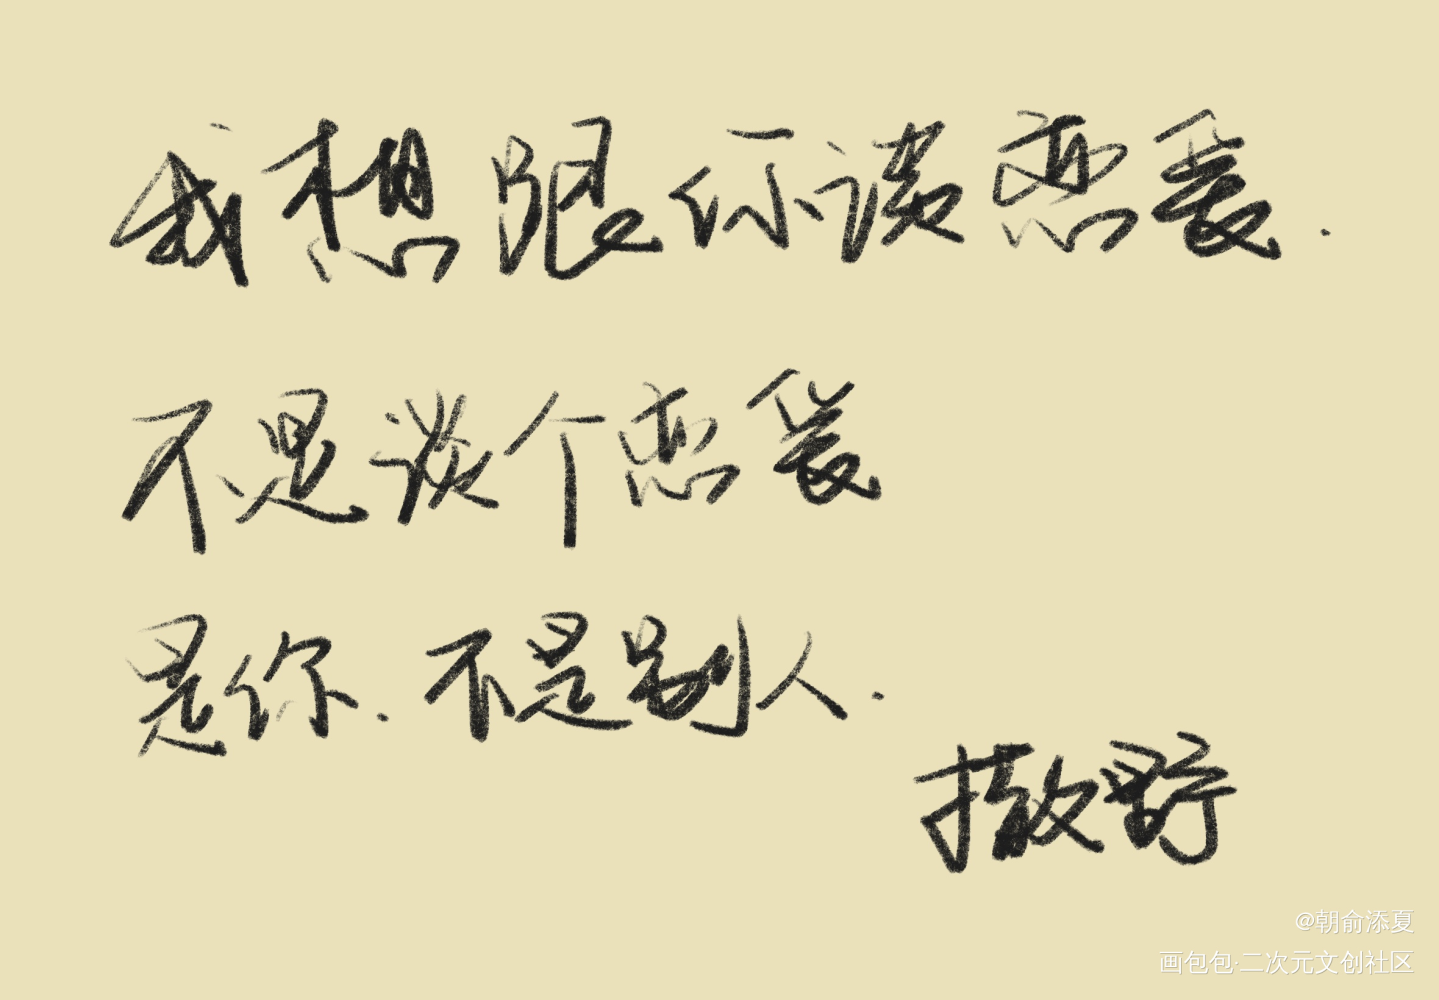 我想跟你谈恋爱.
不是谈个恋爱
是你.不是别人.
撒野
@朝俞添夏
画包包·二次元文创社区